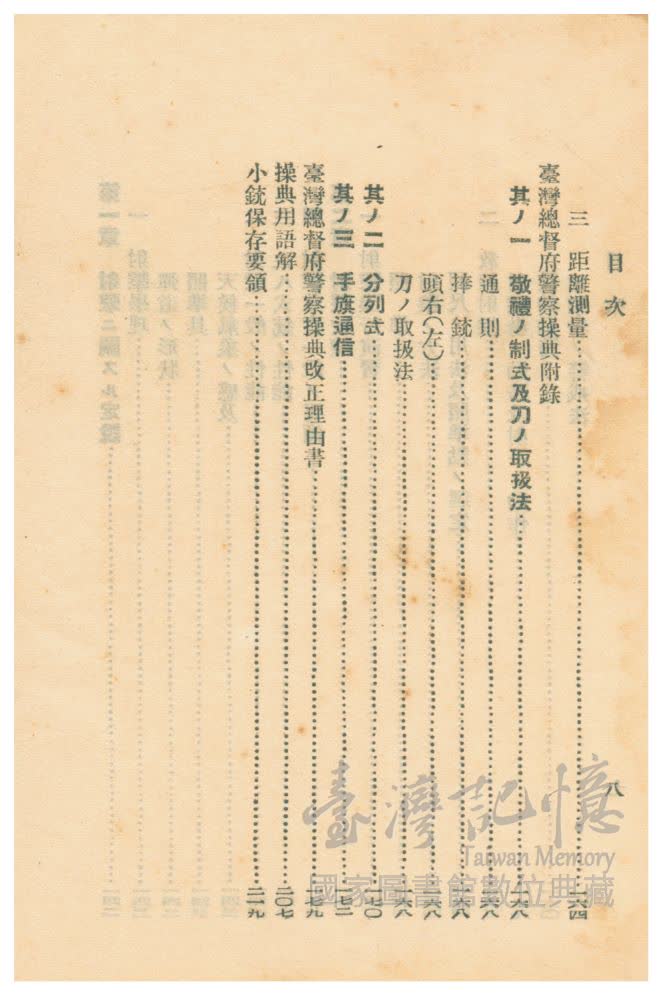 目次
八
三 距離測量……一六四
臺灣總督府警察操典附錄
其ノ一 敬禮ノ制式及刀ノ取扱法……一六八
通則……一六八
捧銃……一六八
頭右(左)……一六八
刀ノ取扱法……一六八
其ノ二 分列式……一七〇
其ノ三 手旗通信……一七二
臺灣總督府警察操典改正理由書……一七九
操典用語解……二〇七
小銃保存要領……二一九
臺灣記憶
Taiwan Memory
國家圖書館數位典藏